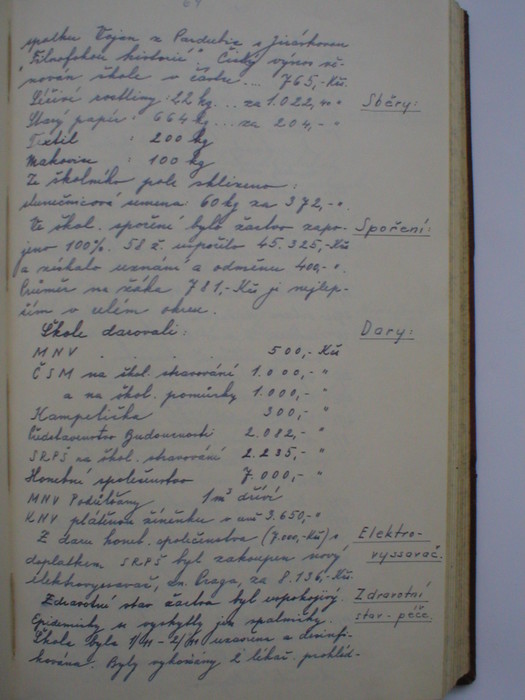 spolku Vojan z Pardubic s Jiráskovou
"Filosofskou historií". Čistý výnos vě-
nován škole v částce ... 765,- Kčs.
Léčivé rostliny: 22 kg ... za 1.022,40 "
Sběry:
Starý papír : 664 kg ... za 204,- "
Textil : 200 kg
Makovice : 100 kg
Ze školního pole sklizeno :
slunečnicová semena 60 kg za 372,- "
Ve škol. spoření bylo žactvo zapo-
Spoření:
jeno 100%. 58 ž. uspořilo 45.325,- Kčs
a získalo uznání a odměnu 400,- "
Průměr na žáka 781,- Kčs je nejlep-
ším v celém okrese.
Škole darovali:
Dary:
MNV . . . . . 500,- Kčs
ČSM na škol. stravování 1.000,- "
a na škol. pomůcky 1.000,- "
Kampelička 300,- "
Představenstvo Budoucnosti 2.082,- "
SRPŠ na škol. stravování 2.235,- "
Honební společenstvo 7.000,- "
MNV 1 m³ dříví
KNV žíněnku v 3.650,- "
Z daru honeb. společenstva (7.000,- Kčs) s
Elektro-
doplatkem SRPŠ byl zakoupen nový
vyssavač.
elektrovyssavač, zn. Praga, za 8.136,- Kčs.
Zdravotní stav žactva byl uspokojivý.
Zdravotní
Epidemicky se vyskytly jen spalničky.
stav - péče.
Škola byla uzavřena a desinfi-
kována. Byly vykonány 2 lékař. prohlíd-